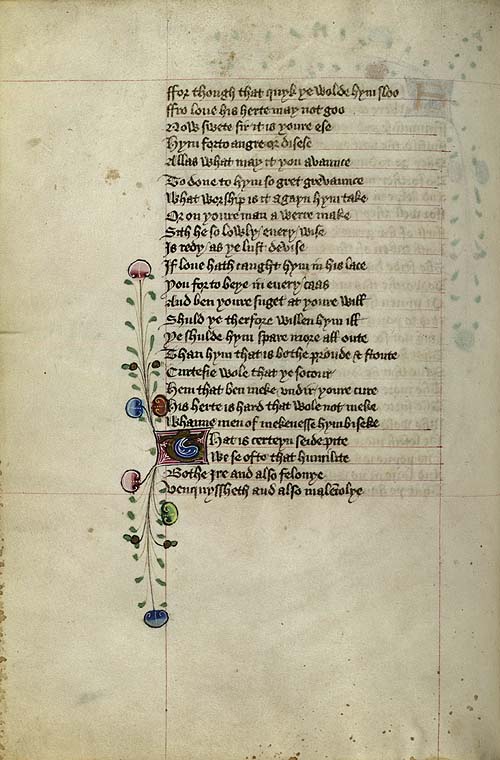 ffor though that quyk ye wolde hym sloo
ffro loue his herte may not goo
Now swete sir it is youre ese
Hym forto angre or disese
Allas what may it you auaunce
To done to hym so gret greuaunce
What worship is it agayn hym take
Or on youre man a werre make
Sith he so lowly euery wise
Is redy as ye lust deuise
If loue hath caught hym in his lace
You forto beye in euery caas
And ben youre suget at youre will
Shuld ye therfore willen hym ill
Ye shulde hym spare more all oute
Than hym that is bothe proude & stoute
Curtesie wole that ye socour
Hem that ben meke vndir youre cure
His herte is hard that wole not meke
Whanne men of mekenesse hym biseke
That is certeyn seide pite
We se ofte that humilite
Bothe Ire and also felonye
Venquyssheth and also malecolye